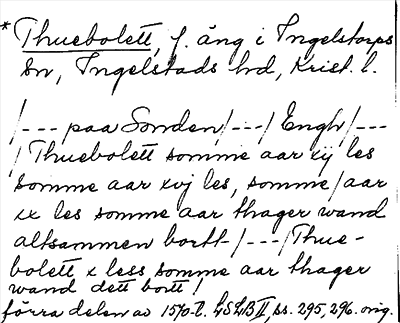 * Thuebolett, f. äng i Ingelstorps
sn, Ingelstads hd, Krist. l.
/--- paa Sonden/---/ Engh/---
/Thuebolett somme aar xij les
somme aar xvj les, somme/aar
xx les somme aar thager wand
altsammen bortt/---/Thue-
bolett x less somme aar thager
wand dett bortt/
förra delen av 1570-t. LSLB II, ss. 295, 296. orig.